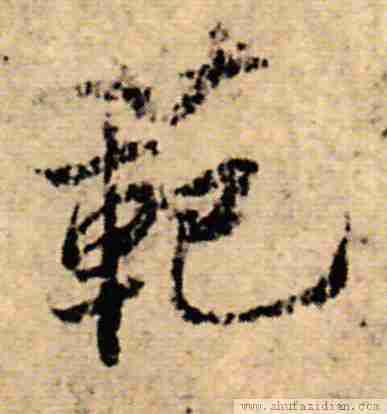 範
www.shufazidian.com